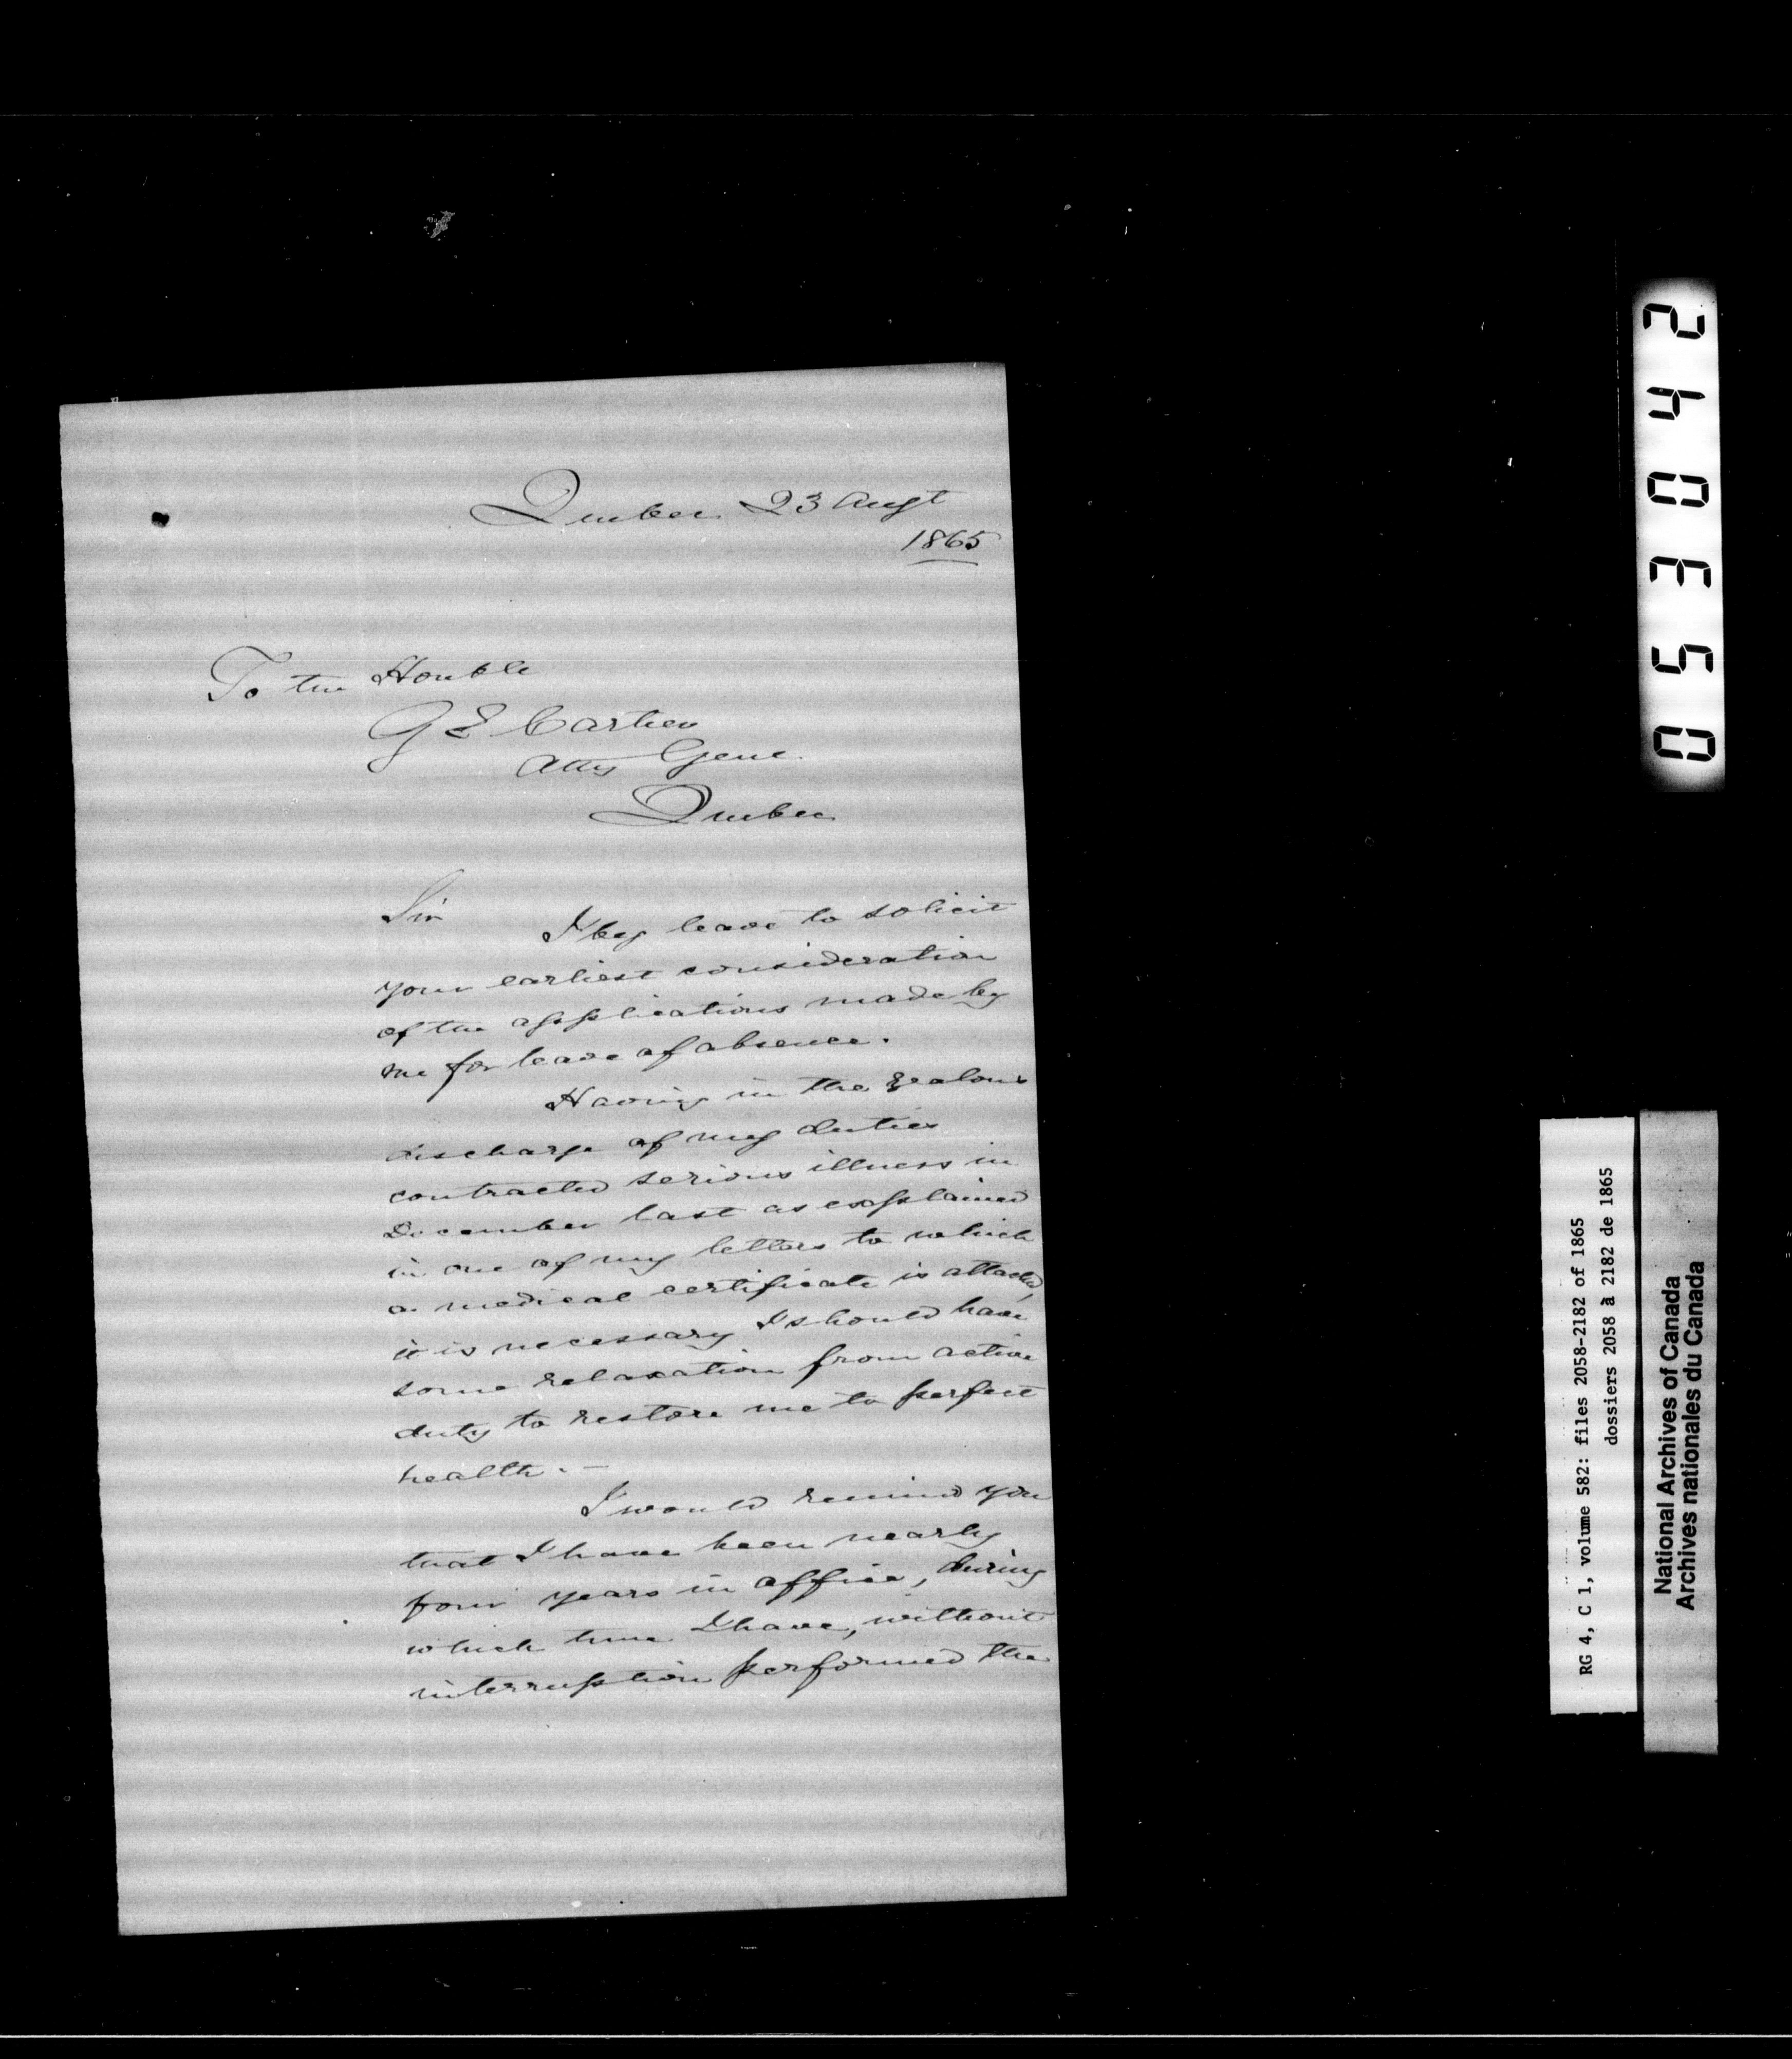 Quebec 23 Augt
1865
To the Honble
G E Cartier
Atty Genl
Quebec
Sir
I beg leave to solicit
your earliest consideration
of the applications made by
me for leave of absence.
Having in the zealous
discharge of my duties
contracted serious illness in
December last as explained
in one of my letters to which
a medical certificate is attached,
it is necessary I should have
some relaxation from active
duty to restore me to perfect
health. —
I would remind you
that I have been nearly
four years in office, during
which time I have, without
interruption performed the
053042
RG 4, C 1, volume 582: files 2058-2182 of 1865
dossiers 2058 à 2182 de 1865
National Archives of Canada
Archives nationales du Canada